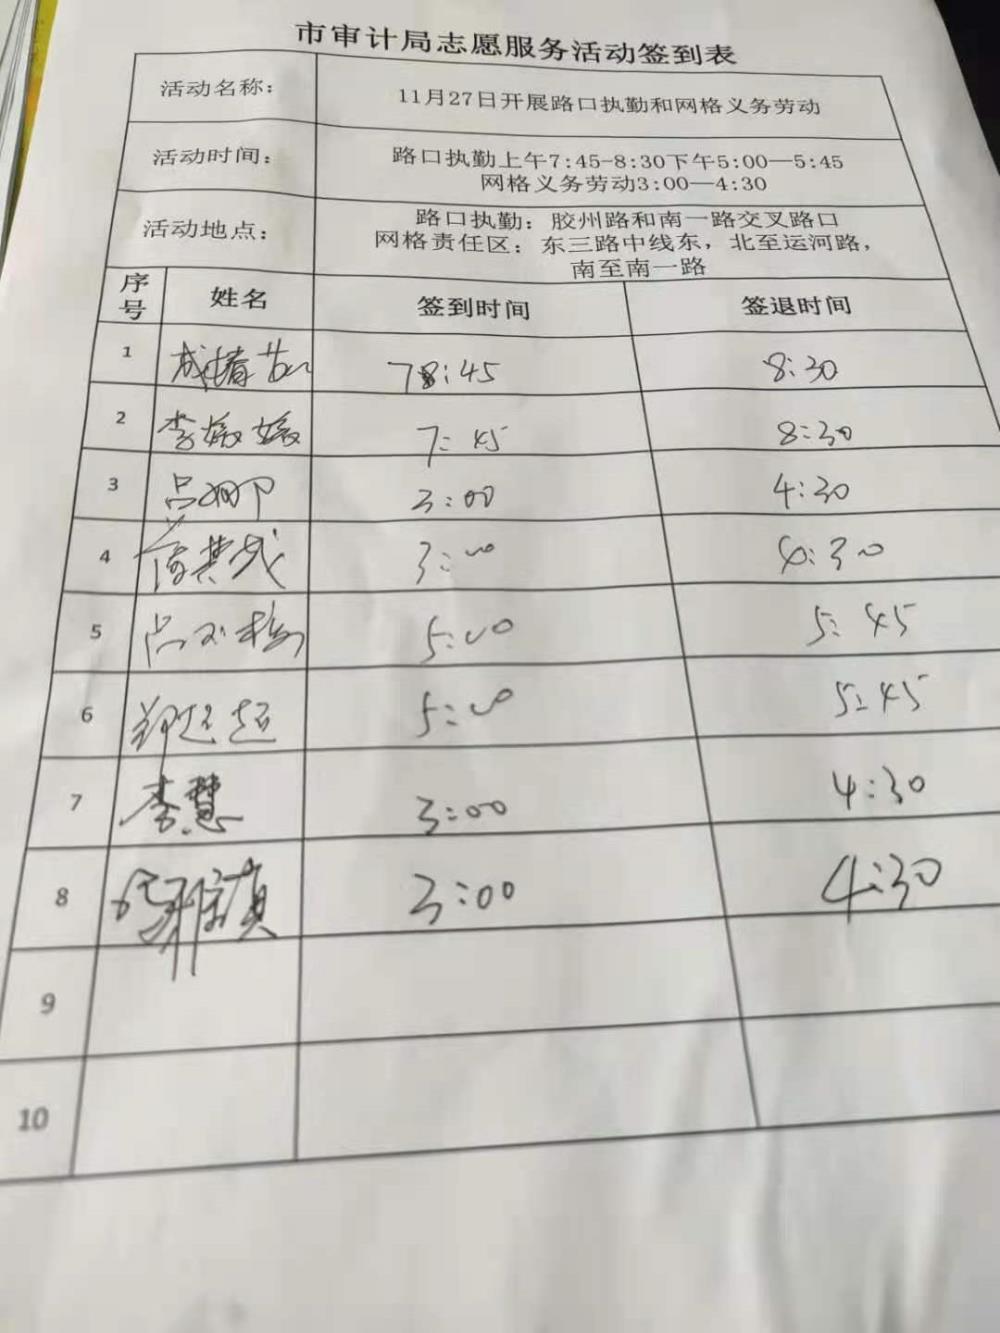 市审计局志愿服务活动签到表
活动名称：
11月27日开展路口执勤和网格义务劳动
活动时间：
路口执勤上午7:45-8:30下午5:00—5:45
网格义务劳动3:00—4:30
活动地点：
路口执勤：胶州路和南一路交叉路口
网格责任区：东三路中线东，北至运河路，
南至南一路
序号 姓名 签到时间 签退时间
1 7:45 8:30
2 李媛媛 7:45 8:30
3 吕 3:00 4:30
4 3:00 4:30
5 吕 5:00 5:45
6 郑超超 5:00 5:45
7 李慧 3:00 4:30
8 3:00 4:30
9
10